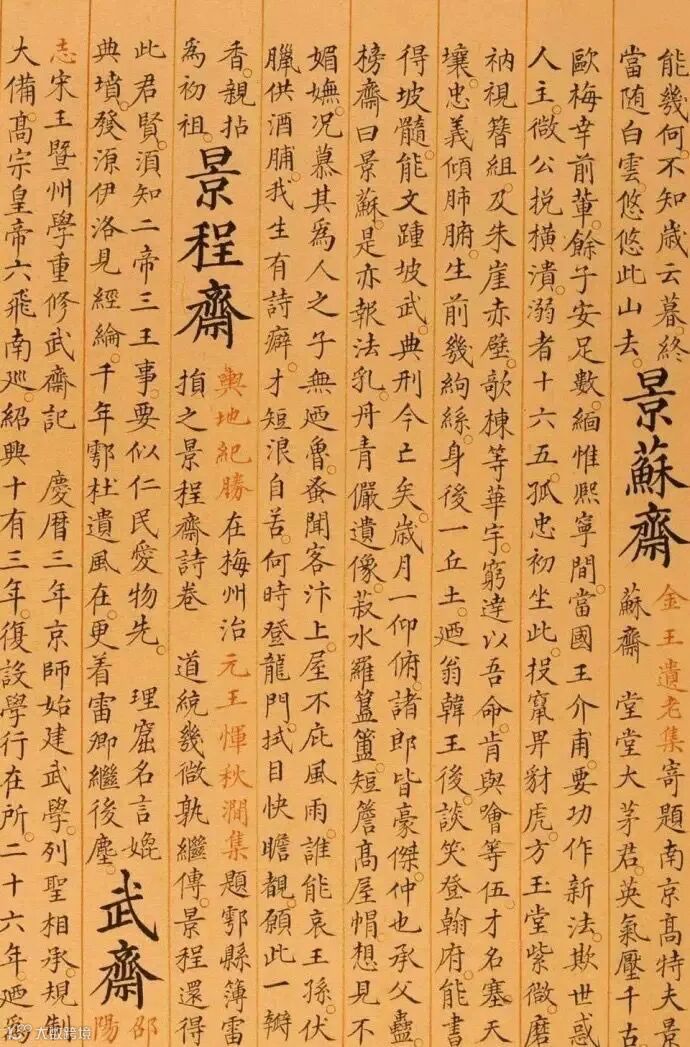 能幾何。不知歲云暮。終
當随白雲悠悠此山去。
景蘇齋
金王遺老集寄題南京高特夫景
蘇齋 堂堂大茅君。英氣壓千古。
歐梅幸前輩。餘子安足數。緬惟熙寧間。當國王介甫。要功作新法。欺世惑
人主。微公挩横潰。溺者十六五。孤忠初坐此。投竄畀豺虎。方玉堂紫微。磨
衲視簪組。及朱崖赤壁。歌棟等華宇。窮達以吾命。肯與噲等伍。才名塞天
壤。忠義傾肺腑。生前幾絇絲。身後一丘土。廼翁韓王後。談笑登翰府。能書
得坡髓。能文踵坡武。典刑今亡矣。歲月一仰俯。諸郎皆豪傑。仲也承父蠱。
榜齋曰景蘇。是亦報法乳。丹青儼遺像。菽水羅簋簠。短簷高屋帽。想見不
媚嫵。况慕其爲人之子無廼魯。蚤聞客汴上。屋不庇風雨。誰能哀王孫。伏
臘供酒脯。我生有詩癖。才短浪自苦。何時登龍門。拭目快瞻覩。願此一瓣
香。親拈
爲初祖。
景程齋
輿地紀勝在梅州治元王惲秋澗集題鄠縣簿雷
損之景程齋詩卷 道統幾微孰繼傳。景程還得
此君賢。須知二帝三王事。要似仁民愛物先。 理窟名言媲
典墳。發源伊洛見經綸。千年鄠杜遺風在。更着雷卿繼後塵。
武齋
邵
陽
志宋王暨州學重修武齋記 慶曆三年京師始建武學。列聖相承。規制
大備。高宗皇帝六飛南廵。紹興十有三年。復設學行在所。二十六年廼爲
大数跨境